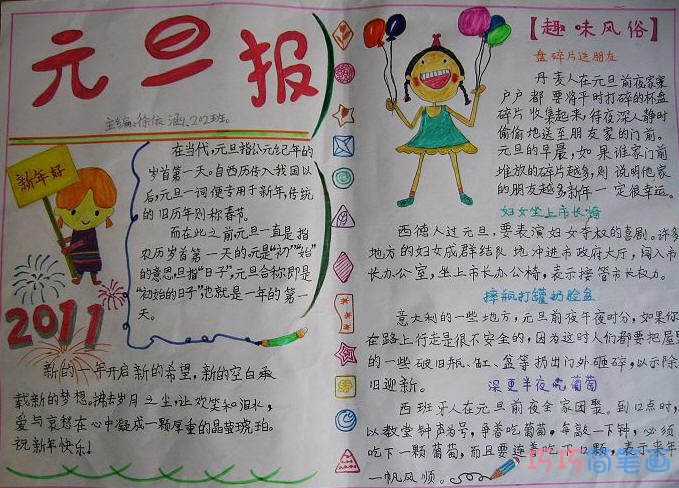 元旦报
主编:徐依涵、202班。
新年好
在当代,元旦指公元纪年的
岁首第一天。自西历传入我国以
后,元旦一词便专用于新年,传统
的旧历年则称春节。
而在此之前元旦一直是指
农历岁首第一天的。元是“初”“始”
的意思,旦指“日子”,元旦合称即是
“初始的日子”,也就是一年的第一
天。
2011
新的一年开启新的希望,新的空白承
载新的梦想。拂去岁月之尘,让欢笑和泪水,
爱与哀愁在心中凝成一颗厚重的晶莹琥珀。
祝新年快乐!
【趣味风俗】
盘碎片送朋友
丹麦人在元旦前夜家家
户户都要将平时打碎的杯盘
碎片收集起来,待夜深人静时
偷偷地送至朋友家的门前。
元旦的早晨,如果谁家门前
堆放的碎片越多,则说明他家
的朋友越多新年一定很幸运。
妇女坐上市长椅
西德人过元旦,要表演妇女夺权的喜剧。许多
地方的妇女成群结队地冲进市政府大厅,闯入市
长办公室,坐上市长办公椅,表示接管市长权力。
摔瓶打罐扔脸盆
意大利的一些地方,元旦前夜午夜时分,如果你
在路上行走是很不安全的,因为这时人们都要把屋里
的一些破旧瓶、缸、盆等扔出门外砸碎,以示除
旧迎新。
深更半夜吃葡萄
西班牙人在元旦前夜全家团聚。到0点时,
以教堂钟声为号,争着吃葡萄,每敲一下钟,必须
吃下一颗葡萄,而且要连着吃下12颗,表示来年
一帆风顺。
巧巧简笔画